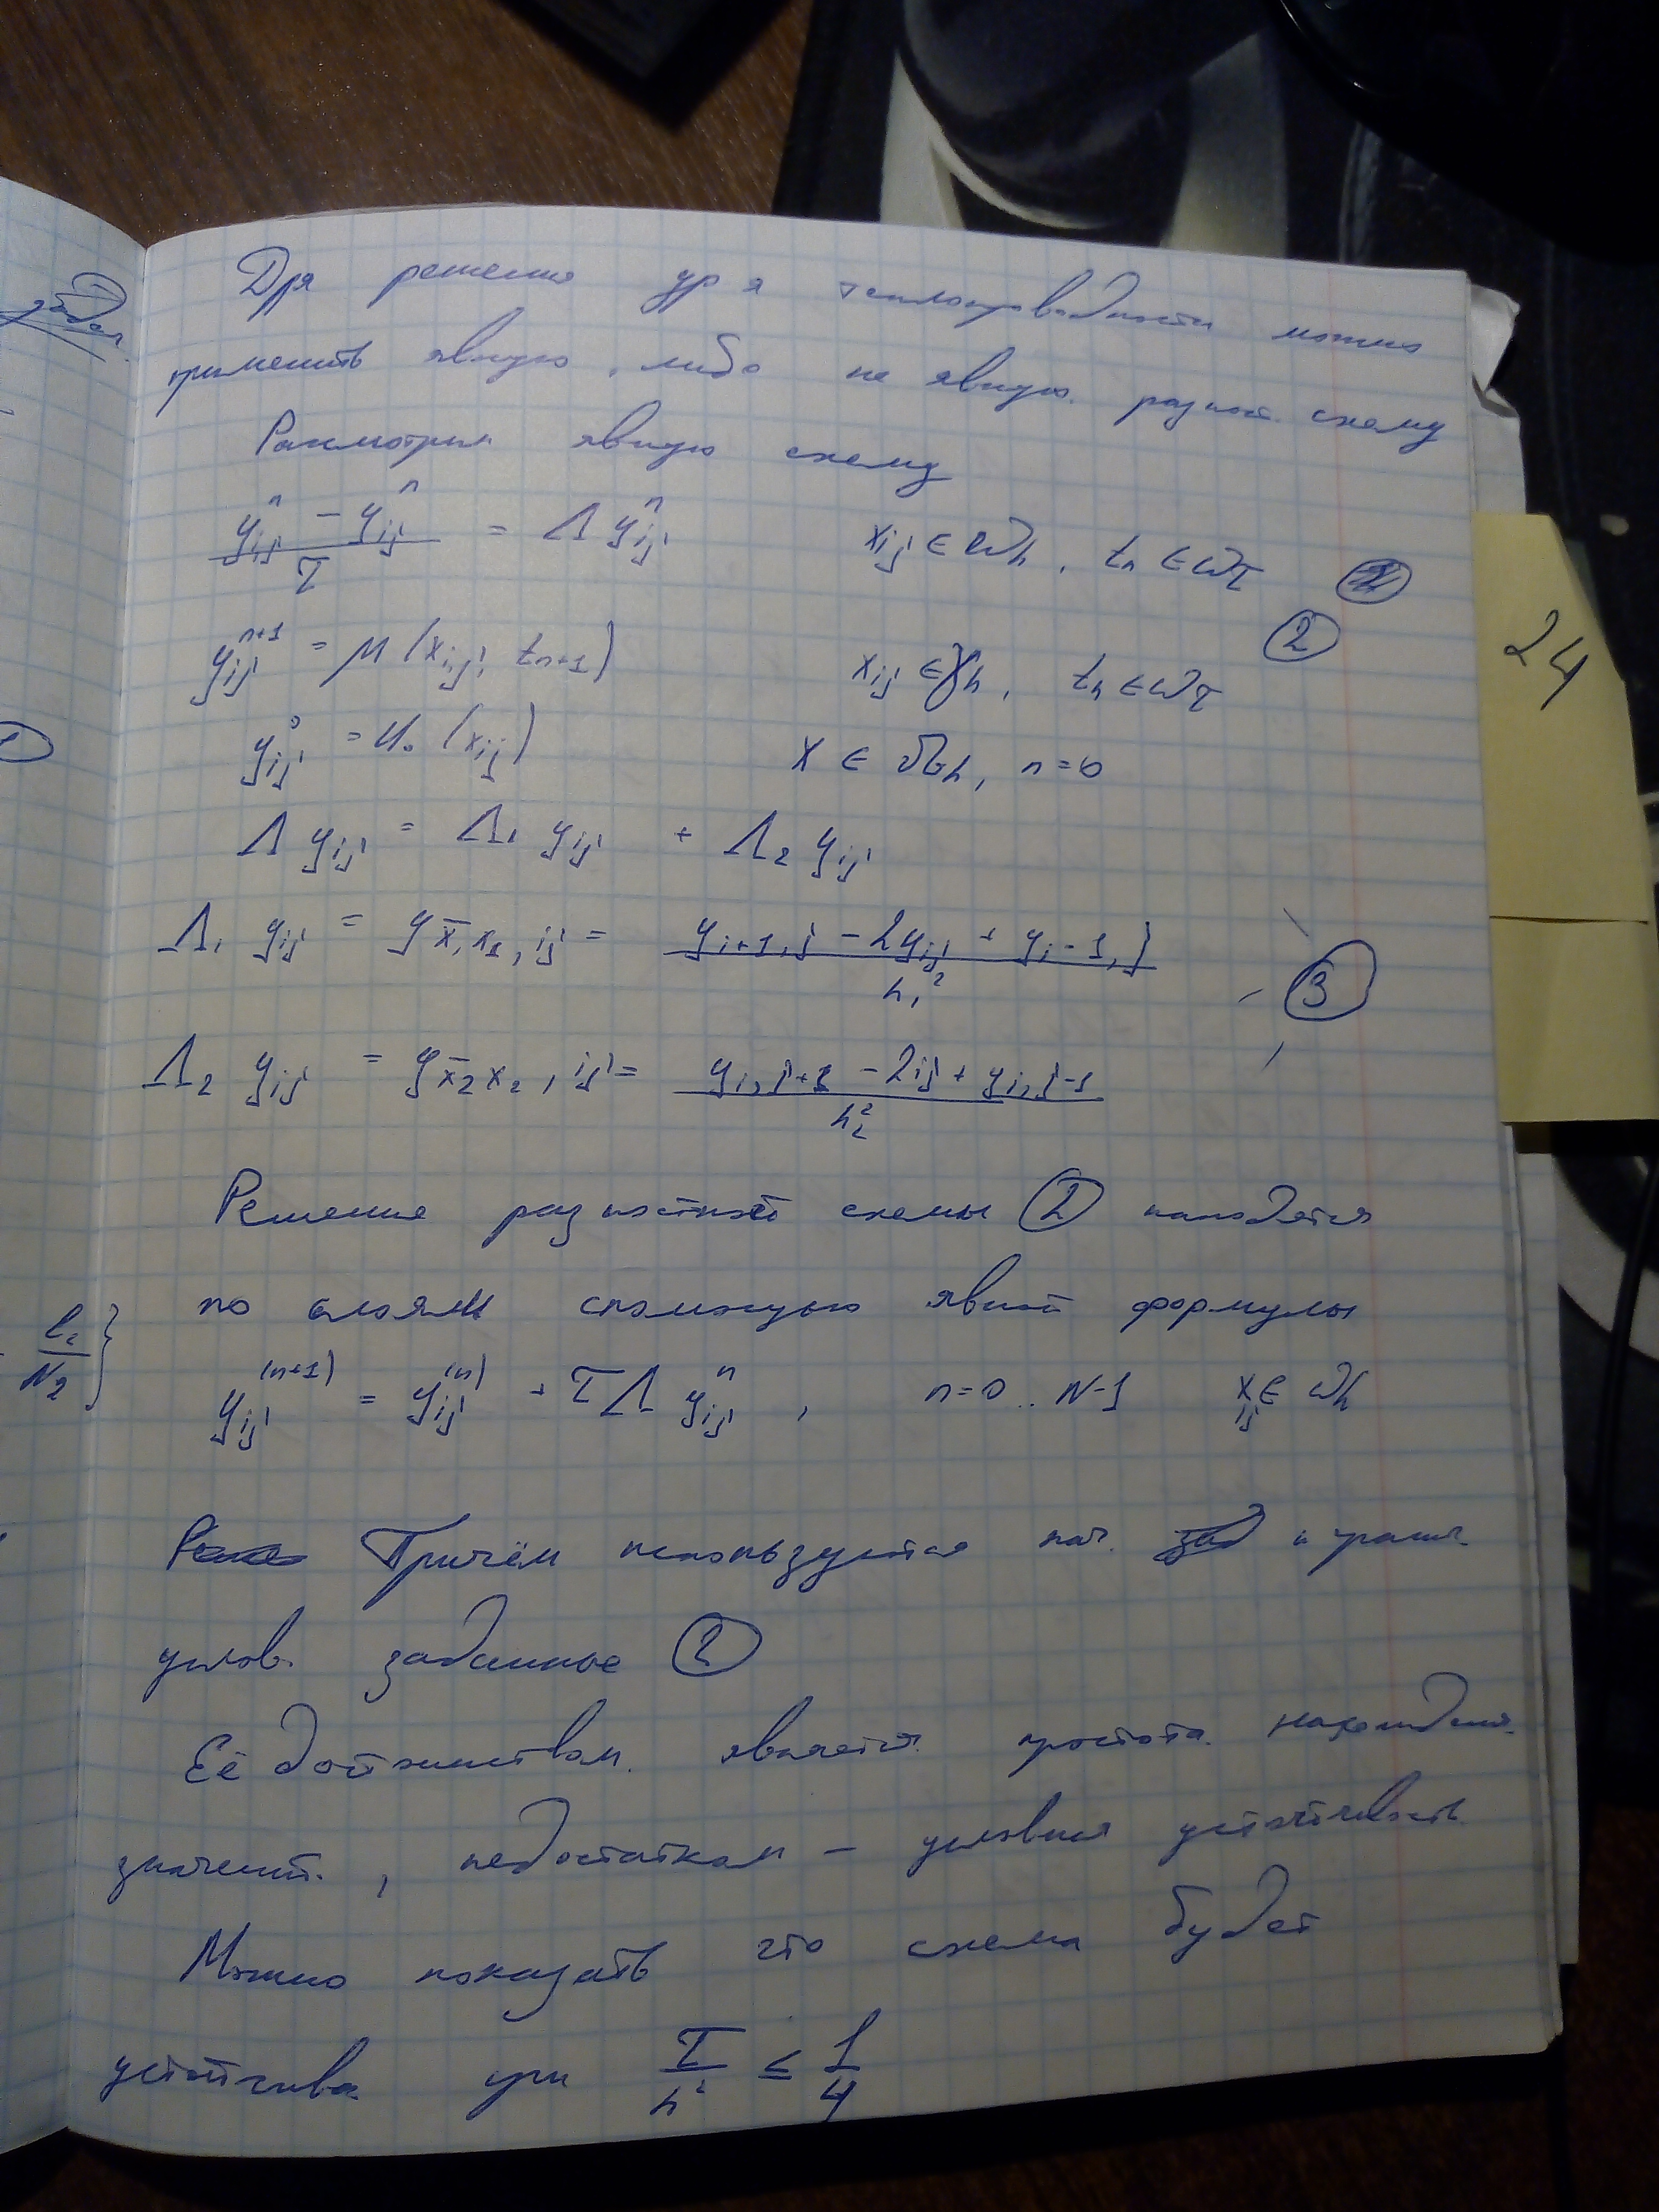 Для решения ур я теплопроводности можно
применить явную, либо не явную разност. схему
Рассмотрим явную схему
(y_{ij}^n - y_{ij}^n) / τ = Λ y_{ij}^n    x_{ij} ∈ ω_h, t_n ∈ ω_τ
②
y_{ij}^{n+1} = μ(x_{ij}, t_{n+1})    x_{ij} ∈ γ_h, t_n ∈ ω_τ
y_{ij}^0 = u_0(x_{ij})    x ∈ ω̄_h, n=0
Λ y_{ij} = Λ_1 y_{ij} + Λ_2 y_{ij}
Λ_1 y_{ij} = y_{x̄_1 x_1, ij} = (y_{i+1,j} - 2y_{ij} + y_{i-1,j}) / h_1^2
③
Λ_2 y_{ij} = y_{x̄_2 x_2, ij} = (y_{i,j+1} - 2ij + y_{i,j-1}) / h_2^2
Решение разностной схемы ② находятся
по слоям спомощью явной формулы
y_{ij}^{(n+1)} = y_{ij}^{(n)} + τ Λ y_{ij}^n, n=0 .. N-1    x_{ij} ∈ ω_h
Причём используется нач. и гранич.
услов. заданные ②
Её достоинством является простота нахождения
значений, недостатком - условия устойчивость
Можно показать что схема будет
устойчива при τ/h^2 ≤ 1/4
задач
①
l_2/N_2 }
24